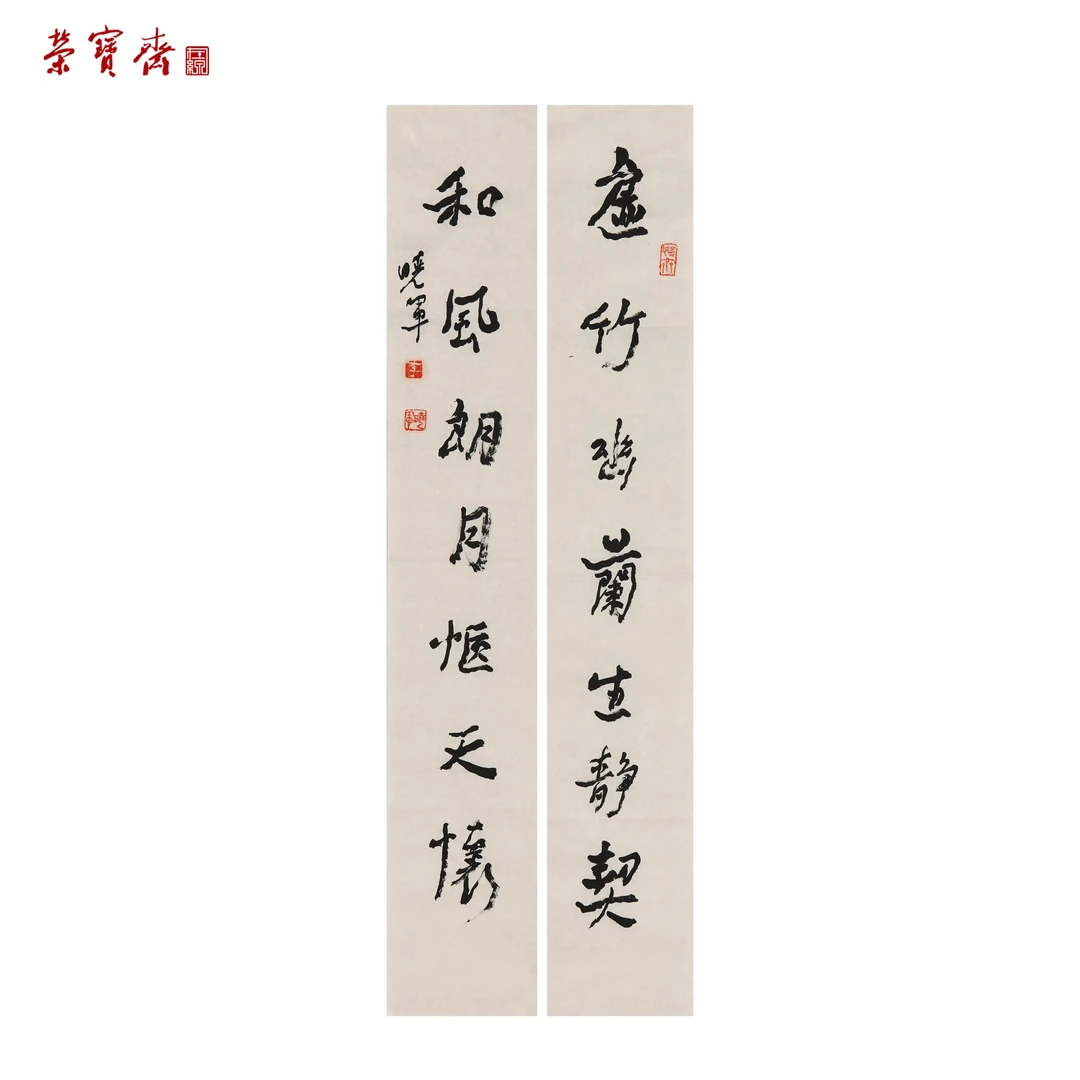 榮寶齋
虛竹幽蘭生靜契
和風朗月愜天懷
曉軍